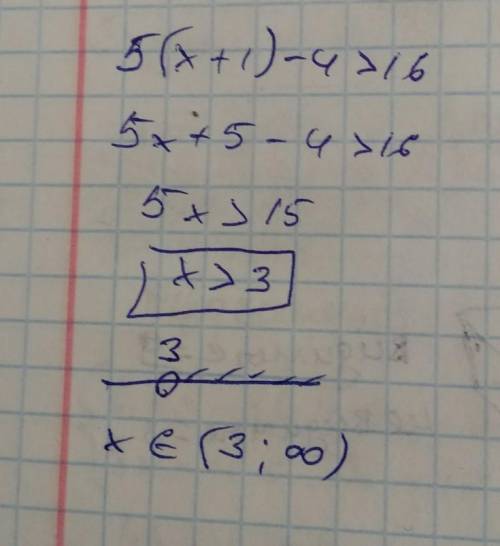 5(x+1)-4>16
5x+5-4>16
5x>15
x>3
3
x∈(3;∞)